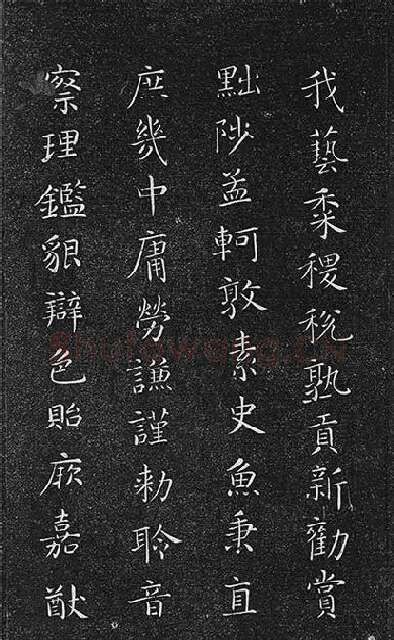 我藝黍稷稅熟貢新勸賞
黜陟孟軻敦素史魚秉直
庶幾中庸勞謙謹勅聆音
察理鑑貌辯色貽厥嘉猷
Shufawang.CN